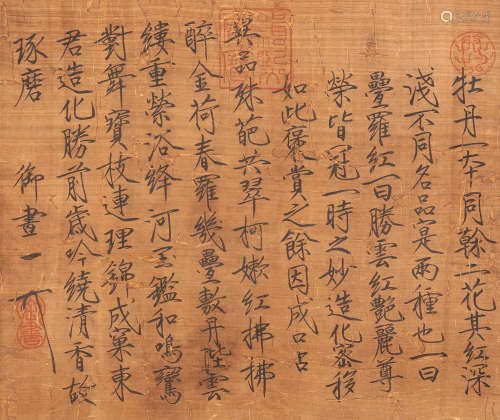 牡丹一本同榦二花其紅深
淺不同名品寔兩種也一曰
疊羅紅一曰勝雲紅艷麗尊
榮皆冠一時之妙造化密移
如此褒賞之餘因成口占
異品殊葩共翠柯嫩紅拂拂
醉金荷春羅幾疊敷丹陛雲
縷重縈浴絳河玉鑑和鳴鸞
對舞寶枝連理錦成窠東
君造化勝前歲吟繞清香故
琢磨 御畫一